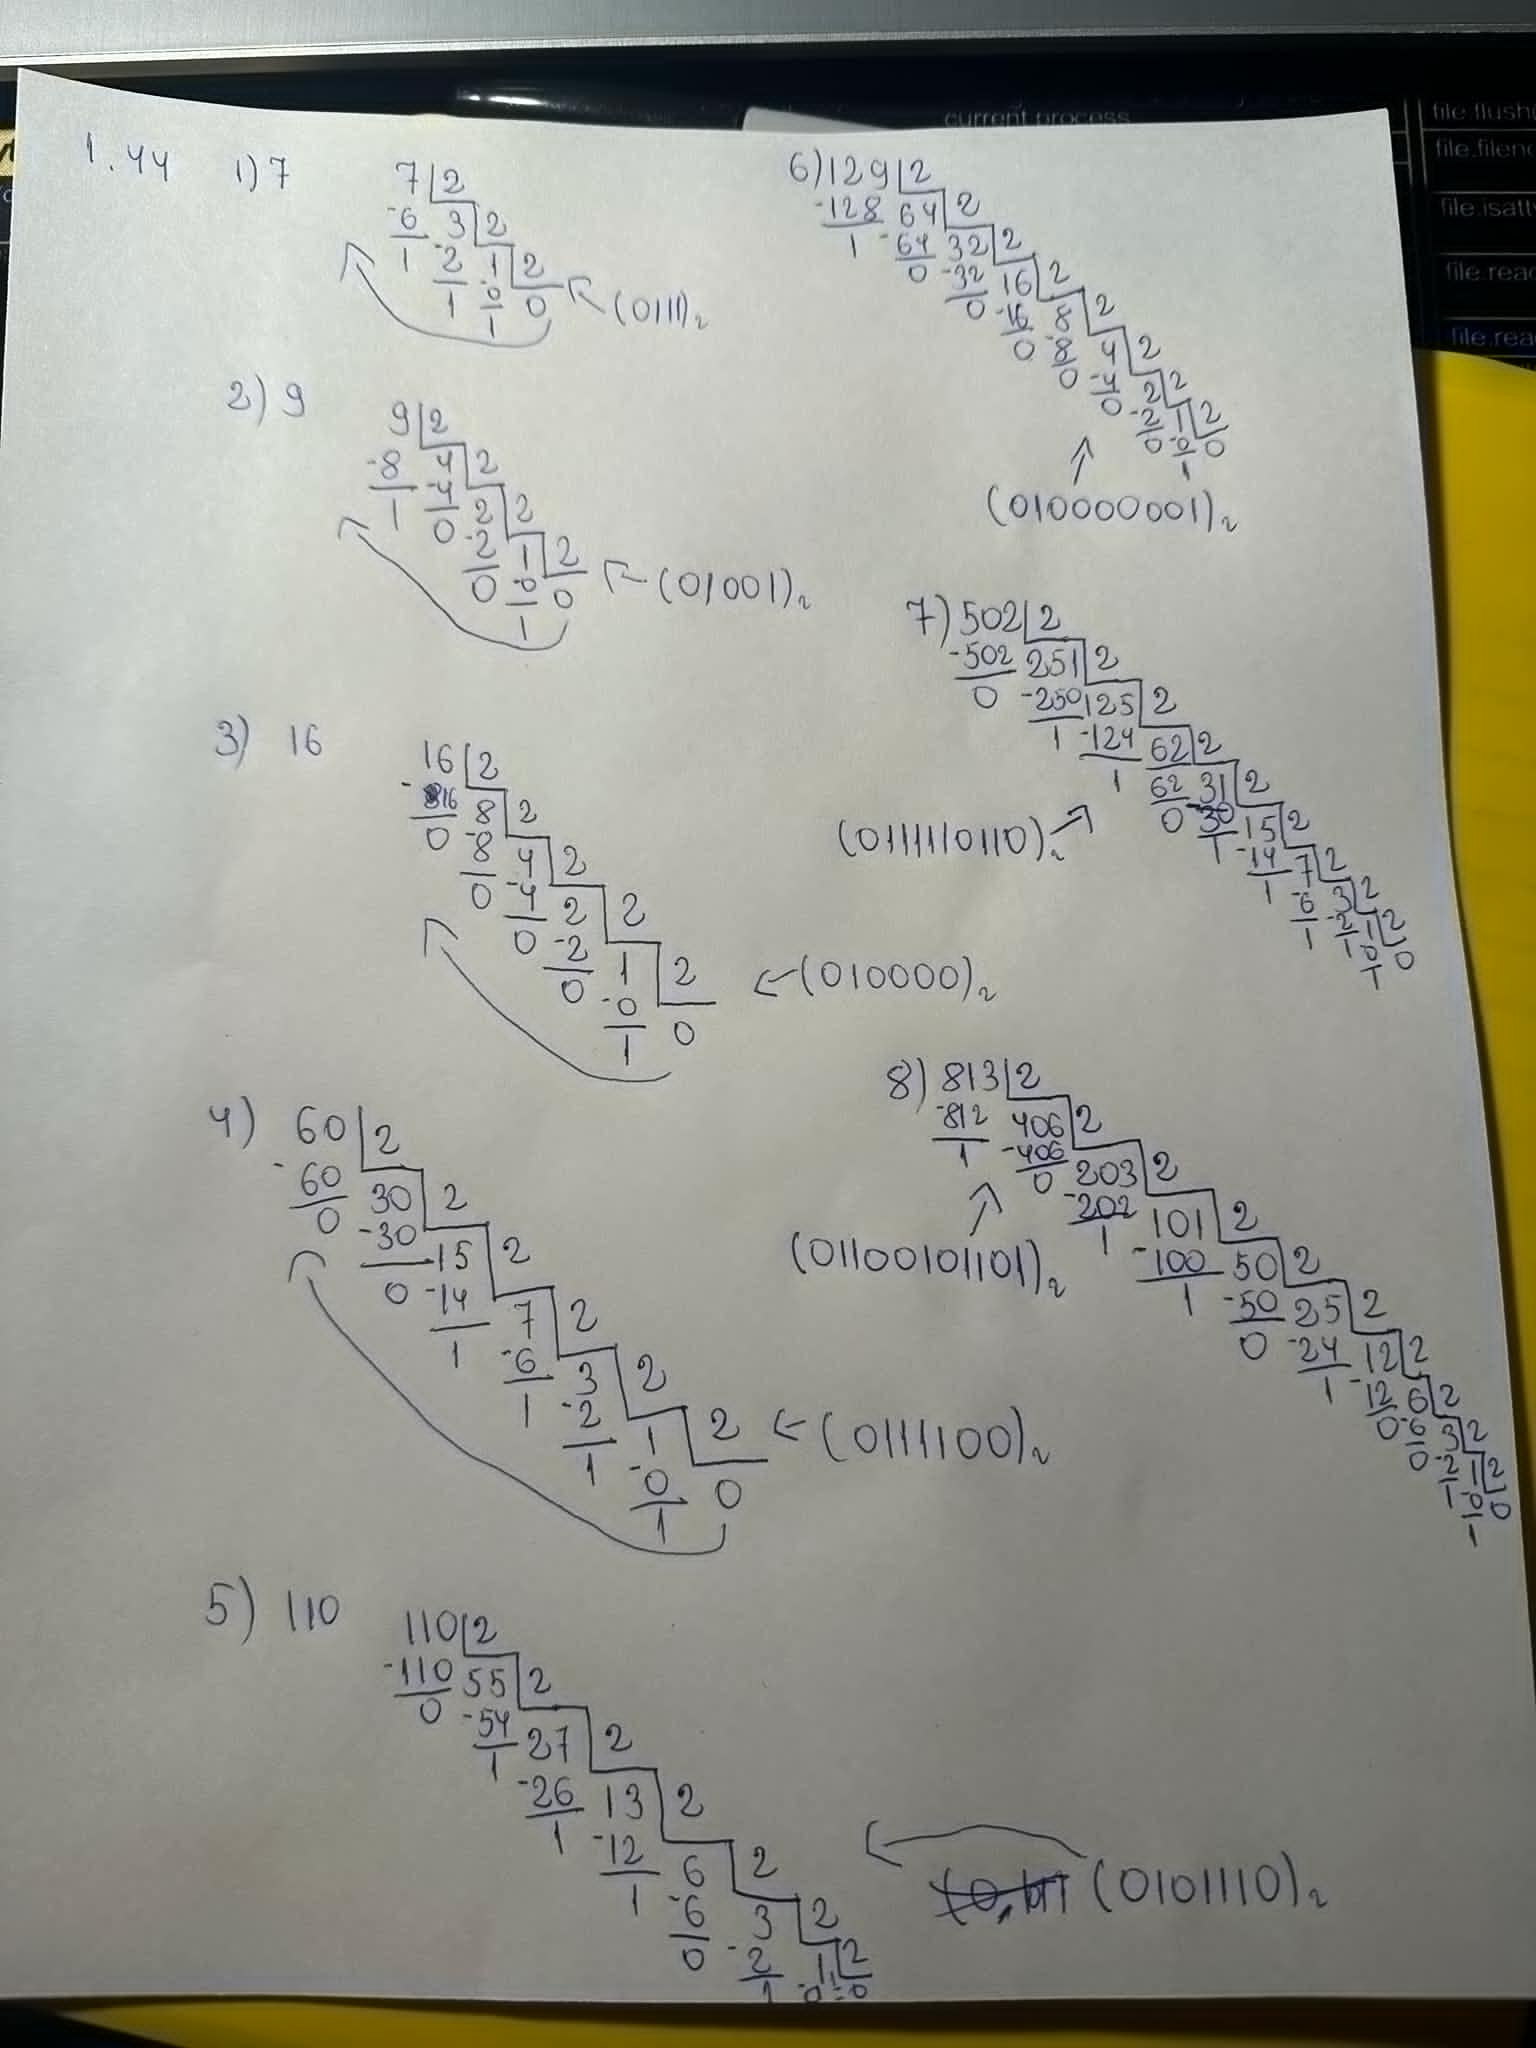 1.44 1) 7
7 2
-6 3 2
1 -2 1 2
1 -0 0 (0111)₂
1
2) 9
9 2
-8 4 2
1 -4 2 2
0 -2 1 2
0 -0 0 (01001)₂
1
3) 16
16 2
-16 8 2
0 -8 4 2
0 -4 2 2
0 -2 1 2
0 -0 0 (010000)₂
1
4) 60 2
-60 30 2
0 -30 15 2
0 -14 7 2
1 -6 3 2
1 -2 1 2
1 -0 0 (0111100)₂
1
5) 110
110 2
-110 55 2
0 -54 27 2
1 -26 13 2
1 -12 6 2
1 -6 3 2
0 -2 1 2
1 -0 0
(0101110)₂
6) 129 2
-128 64 2
1 -64 32 2
0 -32 16 2
0 -16 8 2
0 -8 4 2
0 -4 2 2
0 -2 1 2
0 -0 0
1
(010000001)₂
7) 502 2
-502 251 2
0 -250 125 2
1 -124 62 2
1 62 31 2
0 -30 15 2
1 -14 7 2
1 -6 3 2
1 -2 1 2
1 0 0
1
(0111110110)₂
8) 813 2
-812 406 2
1 -406 203 2
0 -202 101 2
1 -100 50 2
1 -50 25 2
0 -24 12 2
1 -12 6 2
0 -6 3 2
0 -2 1 2
1 -0 0
1
(01100101101)₂
current process
file.flush
file.filen
file.isatty
file.read
file.read